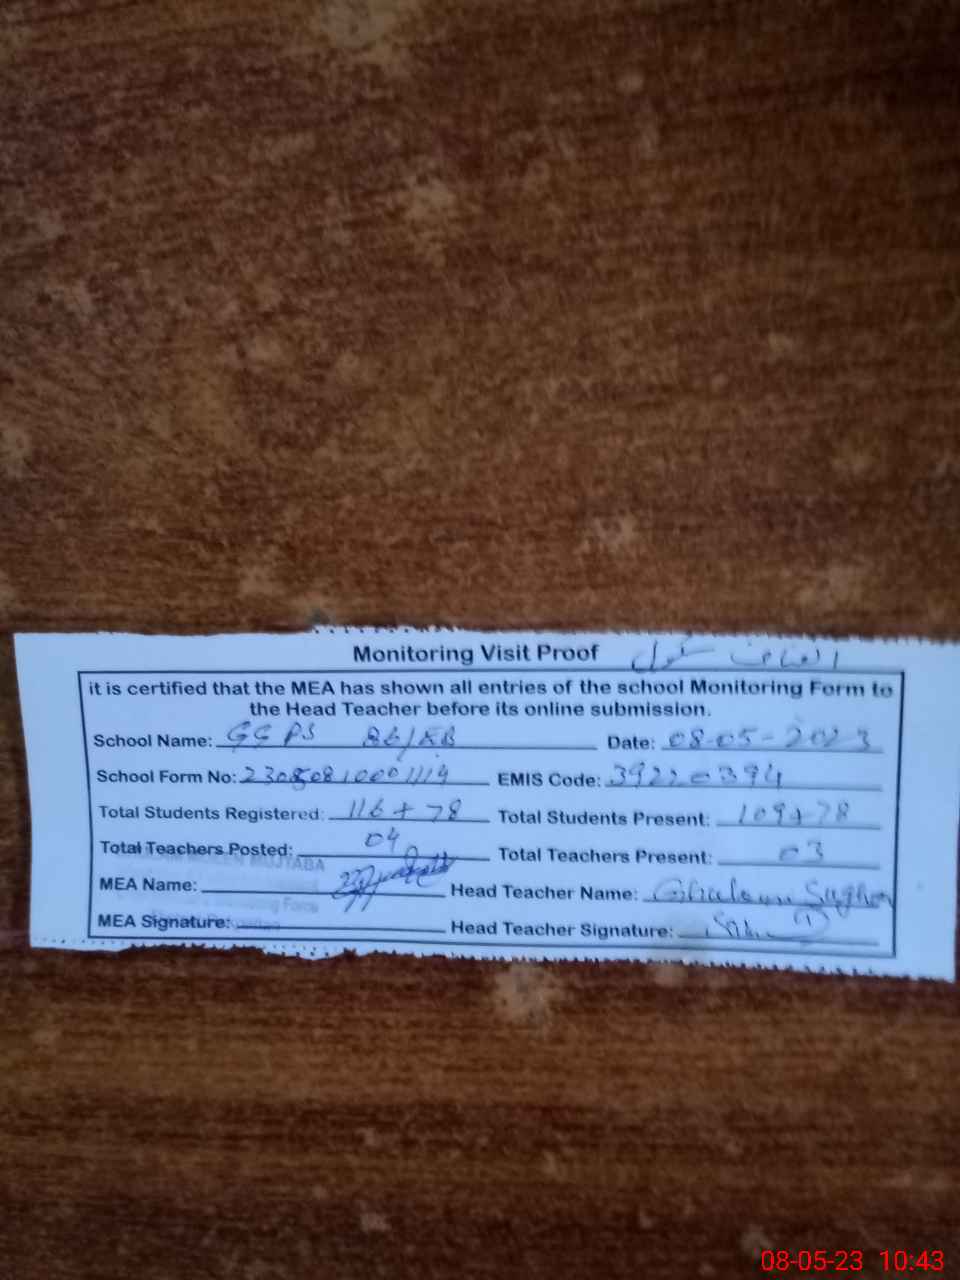 Monitoring Visit Proof انصاف سکول
it is certified that the MEA has shown all entries of the school Monitoring Form to
the Head Teacher before its online submission.
School Name: GGPS 86/EB Date: 08-05-2023
School Form No: EMIS Code: 39220394
Total Students Registered: 116 + 78 Total Students Present: 109+78
Total Teachers Posted: 04 Total Teachers Present: 03
MUJTABA
MEA Name: Head Teacher Name: Ghulam Sughra
MEA Signature: Head Teacher Signature:
08-05-23 10:43